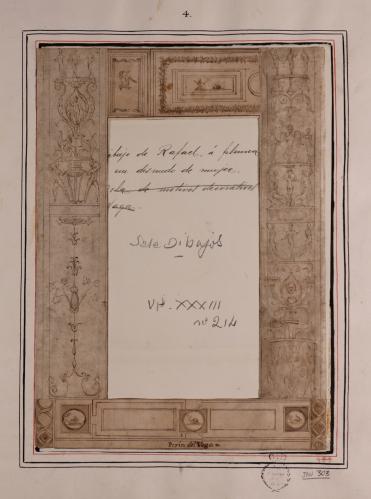 4.
ibujo de Rafael, á pluma
un desnudo de mujer.
cha de motivos decorativos
Vaga.
Sala Dibujos
Vª. XXXIII
nº 214
Perin del Vaga
INV 303